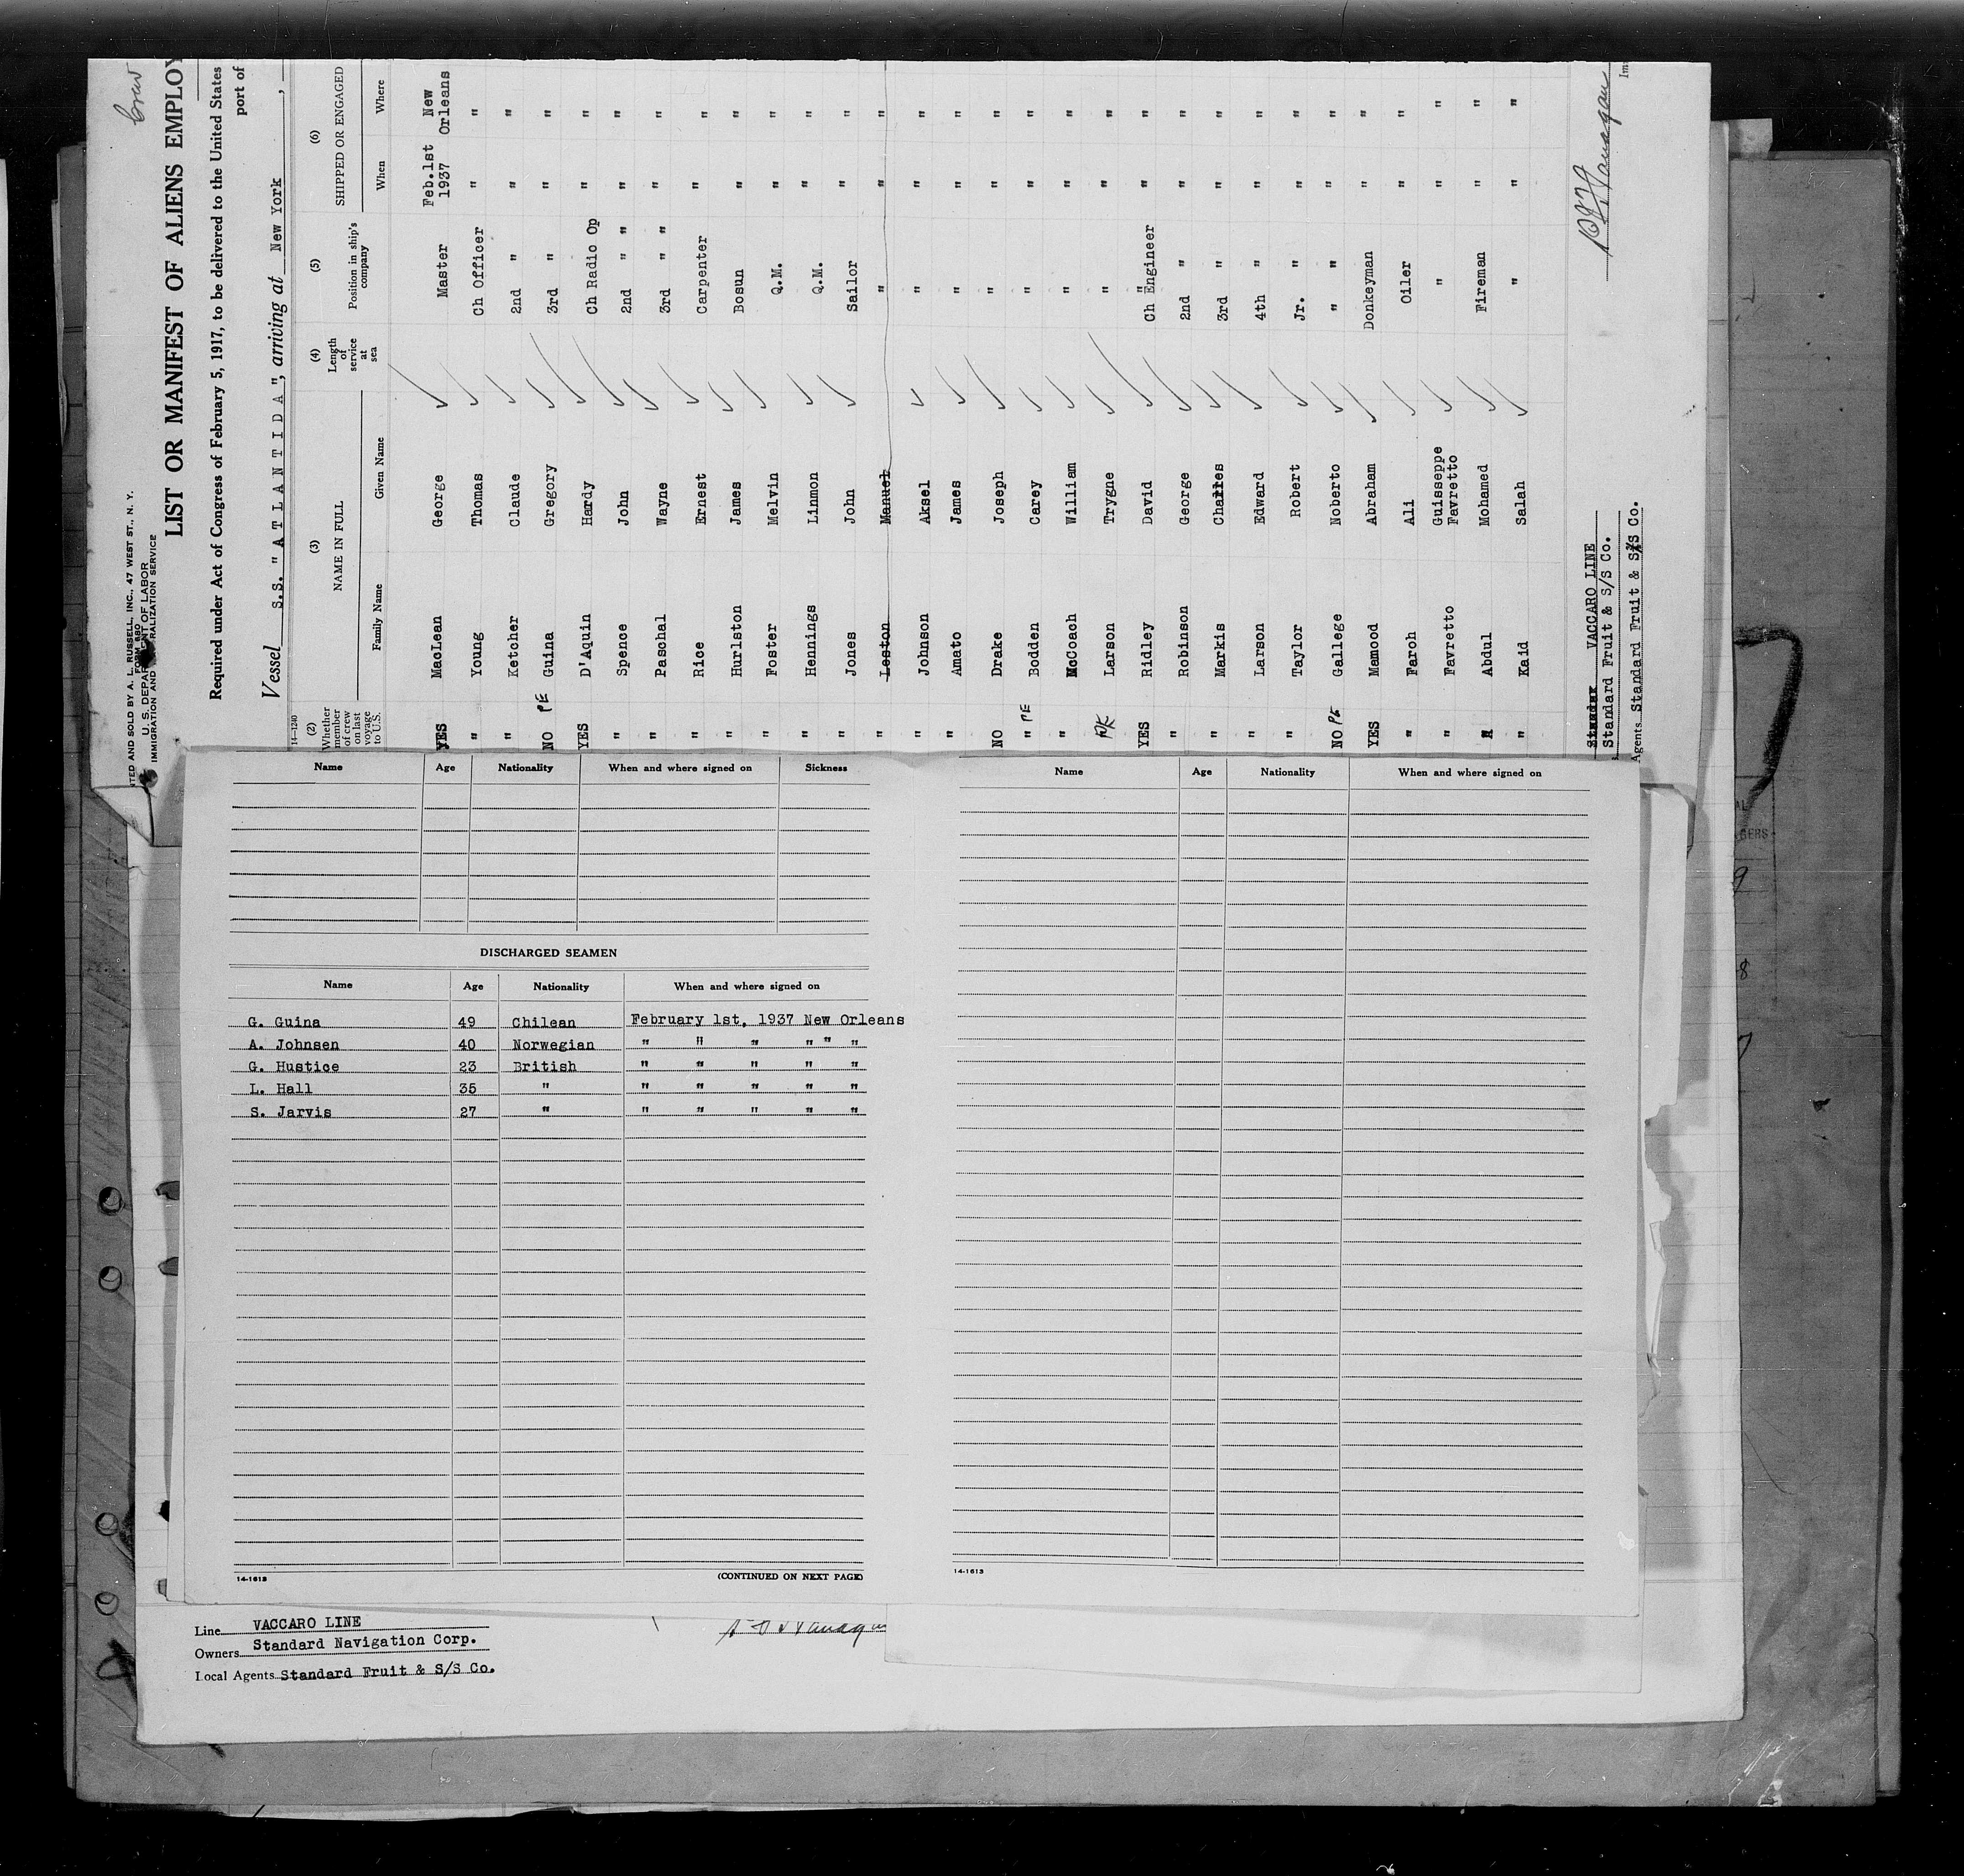 Crew
PRINTED AND SOLD BY A. L. RUSSELL, INC., 47 WEST ST., N. Y.
FORM 680
U. S. DEPARTMENT OF LABOR
IMMIGRATION AND NATURALIZATION SERVICE
LIST OR MANIFEST OF ALIENS EMPLOY
Required under Act of Congress of February 5, 1917, to be delivered to the United States
port of
Vessel S.S. "ATLANTIDA", arriving at New York ,
14-1240
(2) (3) (4) (5) (6)
Whether member of crew on last voyage to U.S. NAME IN FULL Length of service at sea Position in ship's company SHIPPED OR ENGAGED
Family Name Given Name When Where
YES MacLean George Master Feb.1st 1937 New Orleans
" Young Thomas Ch Officer " "
" Ketcher Claude 2nd " " "
NO PE Guina Gregory 3rd " " "
YES D'Aquin Hardy Ch Radio Op " "
" Spence John 2nd " " " "
" Paschal Wayne 3rd " " " "
" Rice Ernest Carpenter " "
" Hurlston James Bosun " "
" Foster Melvin Q.M. " "
" Hennings Linmon Q.M. " "
" Jones John Sailor " "
" Leston Manuel " " "
" Johnson Aksel " " "
" Amato James " " "
NO Drake Joseph " " "
" PE Bodden Carey " " "
" McCoach William " " "
PE Larson Trygne " " "
YES Ridley David Ch Engineer " "
" Robinson George 2nd " " "
" Markis Charles 3rd " " "
" Larson Edward 4th " " "
" Taylor Robert Jr. " " "
NO PE Gallege Noberto " " " "
YES Mamood Abraham Donkeyman " "
" Faroh Ali Oiler " "
" Favretto Guisseppe Favretto " " "
" Abdul Mohamed Fireman " "
" Kaid Salah " " "
VACCARO LINE
Standard Fruit & S/S Co.
Agents Standard Fruit & S/S Co.
Name Age Nationality When and where signed on Sickness
DISCHARGED SEAMEN
Name Age Nationality When and where signed on
G. Guina 49 Chilean February 1st, 1937 New Orleans
A. Johnsen 40 Norwegian " " " " " "
G. Hustice 23 British " " " " "
L. Hall 35 " " " " " "
S. Jarvis 27 " " " " " "
14-1613
(CONTINUED ON NEXT PAGE)
Name Age Nationality When and where signed on
14-1613
Line VACCARO LINE
Owners Standard Navigation Corp.
Local Agents Standard Fruit & S/S Co.